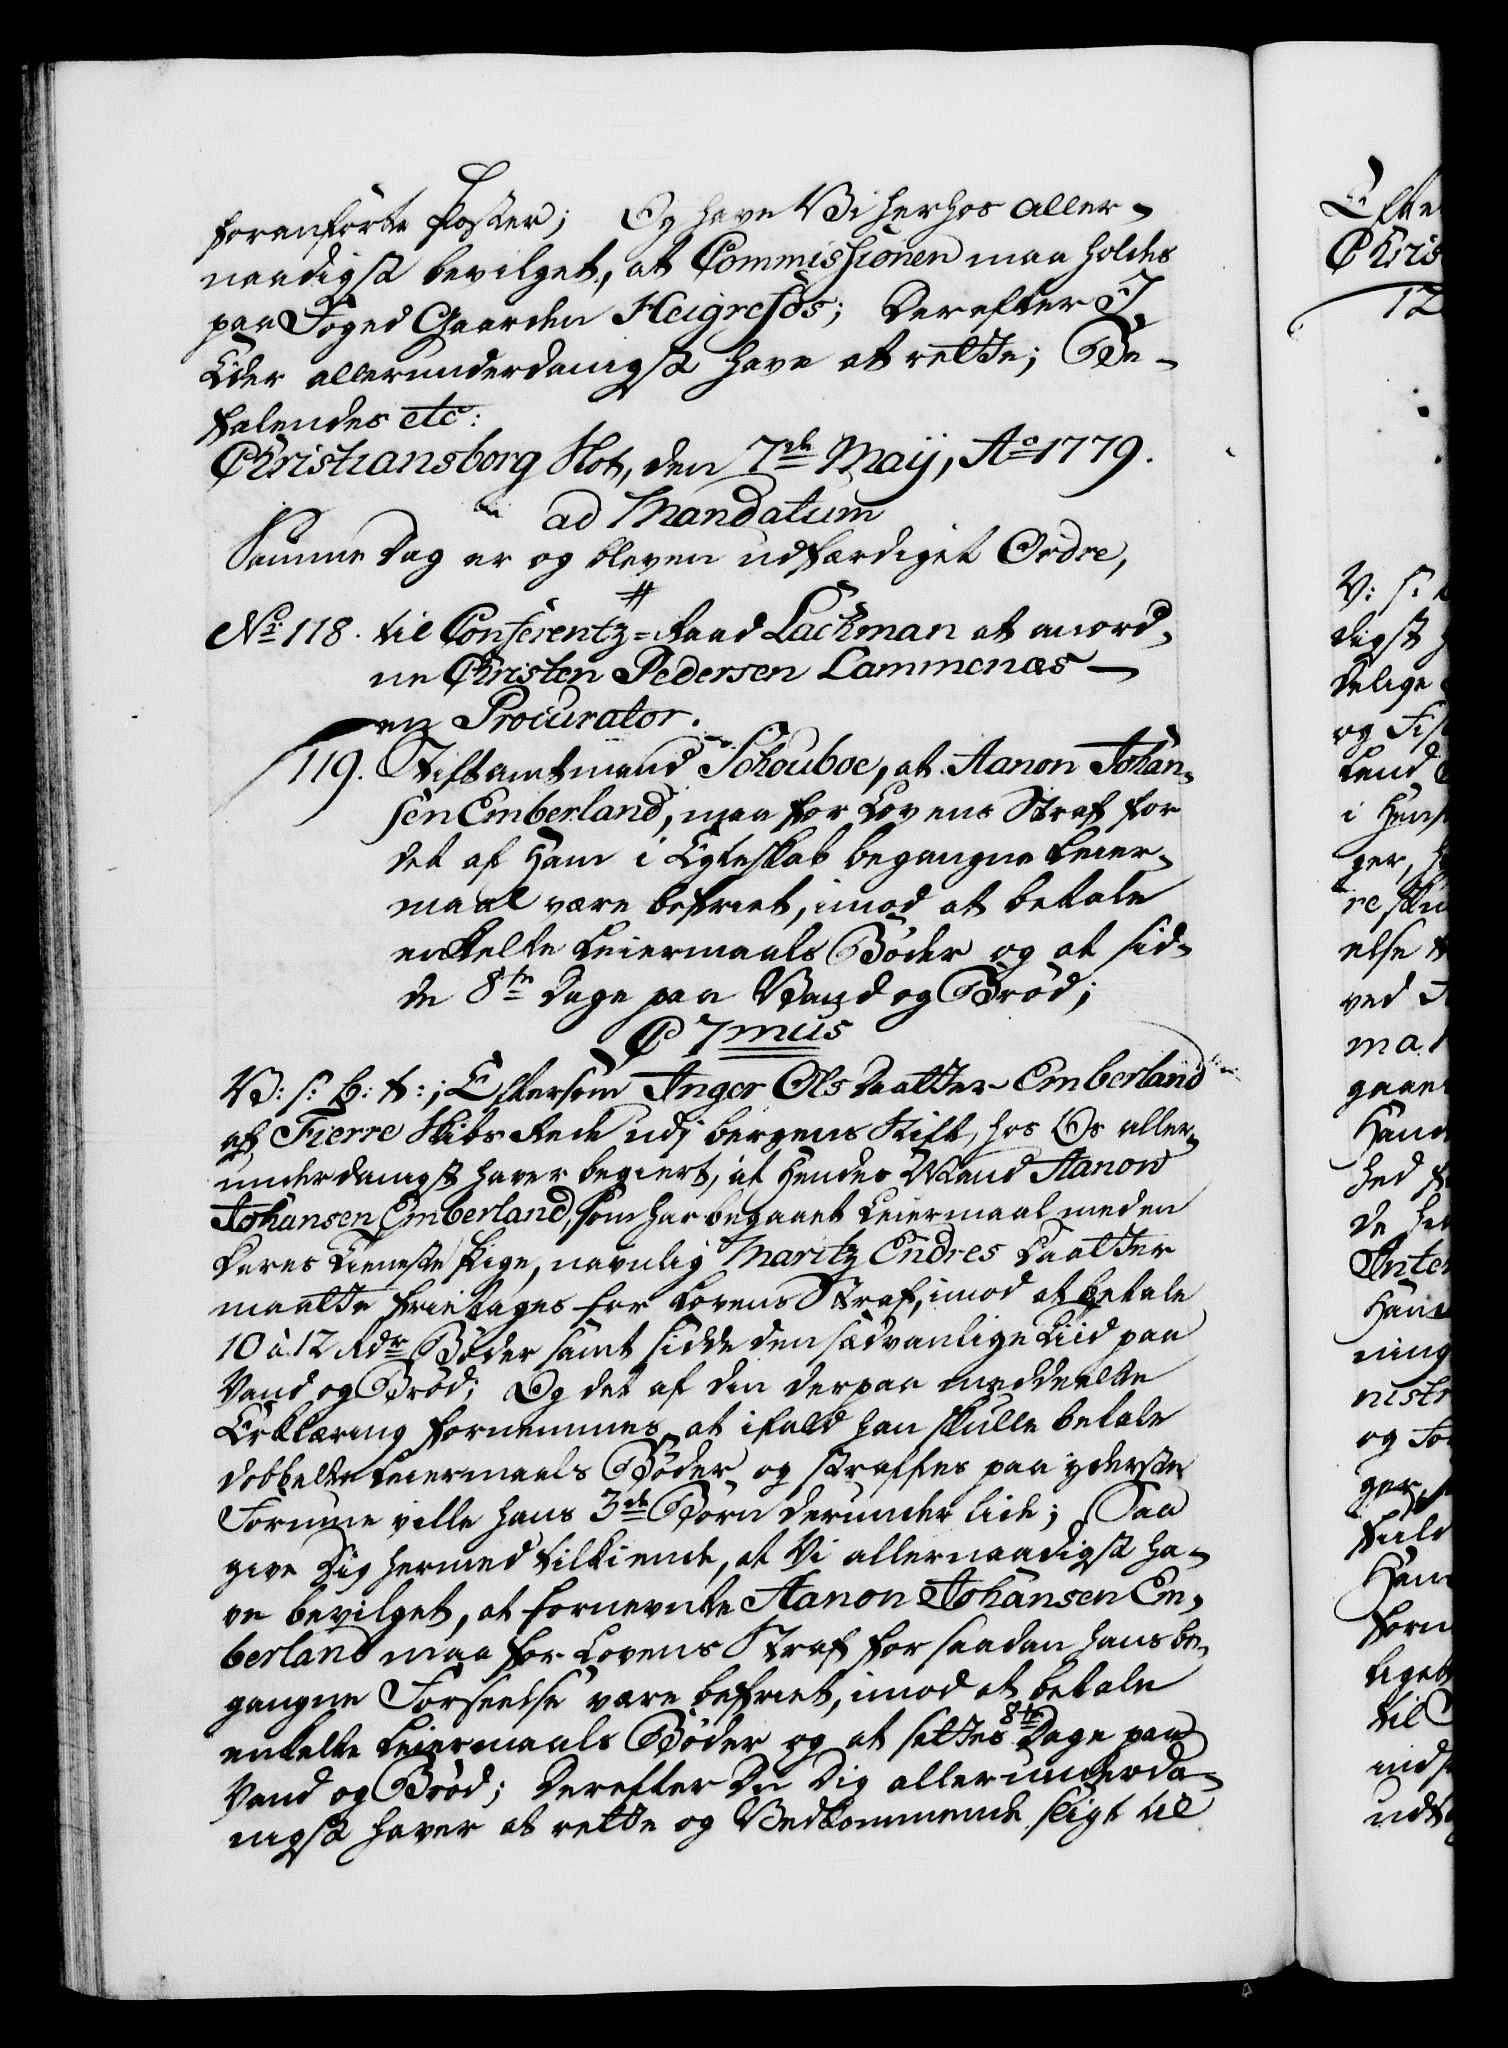 foranførte Poster; Og have Vi herhos aller-
naadigst bevilget, at Commissionen maa holdes
paa Foged Gaarden Heigrefos; Derefter I
Eder allerunderdanigst have at rette; Be-
falendes etc:
Christiansborg Slot, den 7de Maij, Ao 1779.
ad Mandatum
Samme Dag er og bleven udfærdiget Ordre,
No 118. til Conferentz-Raad Lachman at anord-
ne Christen Pedersen Lammenæs
en Procurator.
119. Stiftamtmand Schouboe, at Aanon Johan-
sen Emberland, maa for Lovens Straf for
det af Ham i Egteskab begangne Leier-
maal være befriet, imod at betale
enkelte Leiermaals Bøder og at sid-
de 8te Dage paa Vand og Brød;
C 7mus
V: s: G: t:; Eftersom Inger Ols Daatter Emberland
af Fierre Skibs Rede udj bergens Stift, hos Os aller-
underdanigst haver begiert, at Hendes Mand Aanon
Johansen Emberland, som har begaaet Leiermaal med en
Deres Tieneste Pige, navnlig Maritz Endres Daatter
maatte frietages for Lovens Straf, imod at betale
10 à 12 Rdr Bøder samt sidde den sædvanlige Tiid paa
Vand og Brød; Og det af din derpaa meddeelte
Erklæring fornemmes, at ifald han skulle betale
dobbelte Leiermaals Bøder og straffes paa yderste
Formue ville hans 3de Børn derunder lide; Saa
give Dig hermed tilkiende, at Vi allernaadigst ha-
ve bevilget, at fornevnte Aanon Johansen Em-
berland maa for Lovens Straf for saadan hans be-
gangne Forseelse være befriet, imod at betale
enkelte Leiermaals Bøder og at settes 8te Dage paa
Vand og Brød; Derefter Du Dig allerunderda-
nigst haver at rette og Vedkommende sligt til